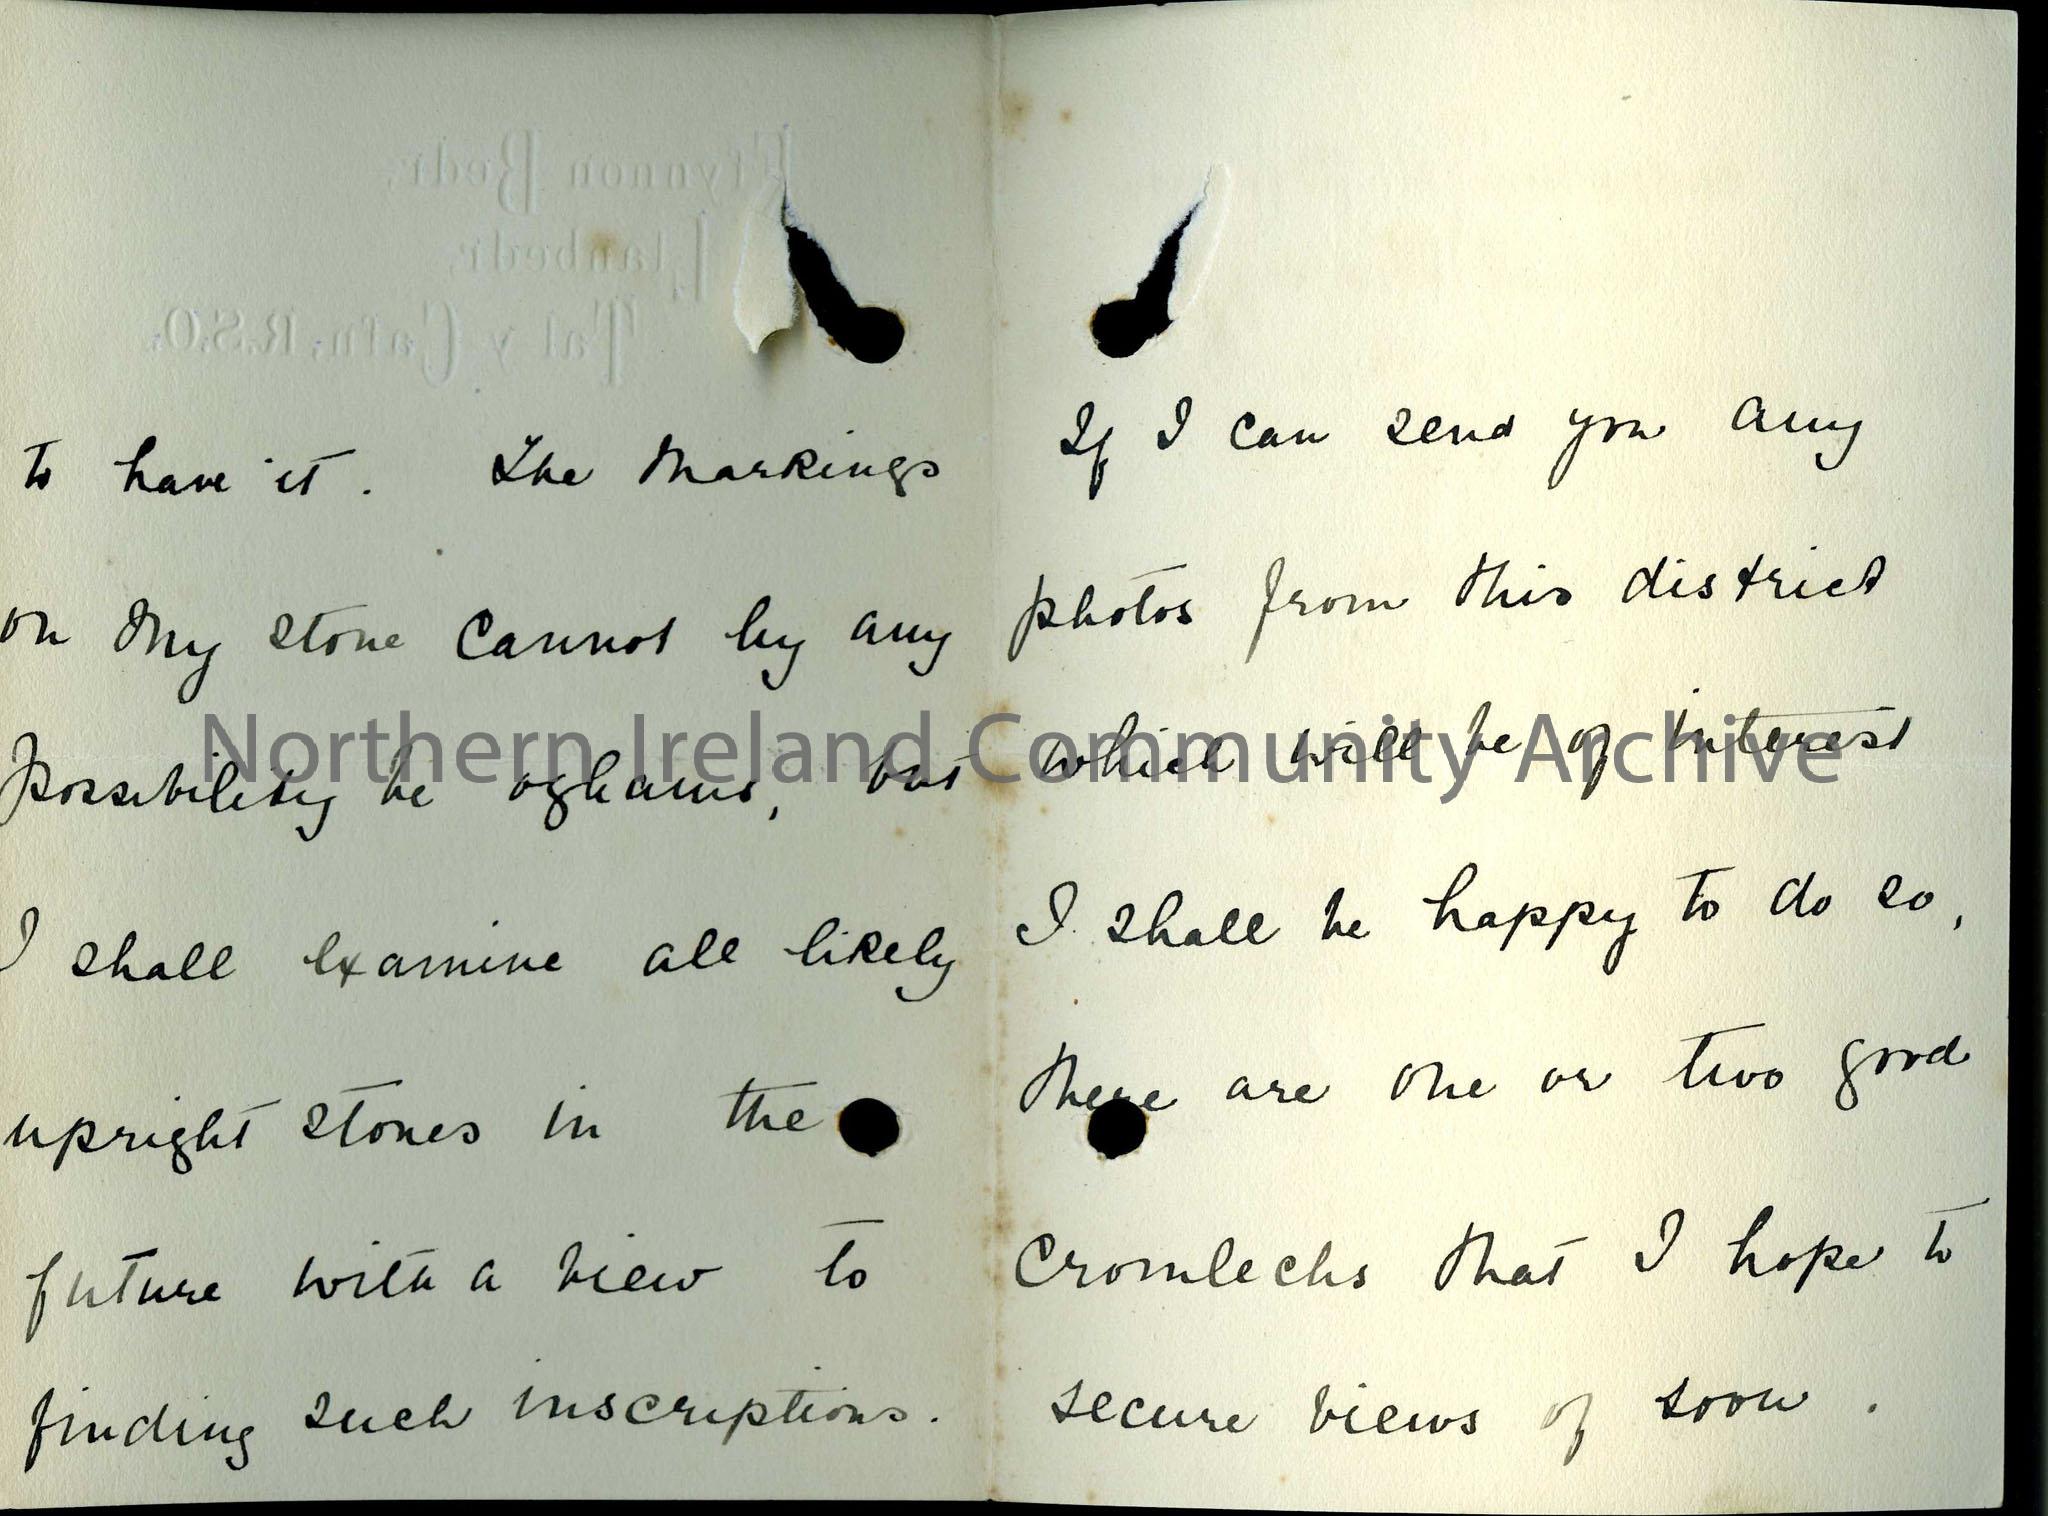 Ffynnon Bedr,
Llanbedr,
Tal y Cafn, R.S.O.
to have it. The markings
on my stone cannot by any
possibility be oghams, but
I shall examine all likely
upright stones in the
future with a view to
finding such inscriptions.
If I can send you any
photos from this district
which will be of interest
I shall be happy to do so,
there are one or two good
Cromlechs that I hope to
secure views of soon.
Northern Ireland Community Archive